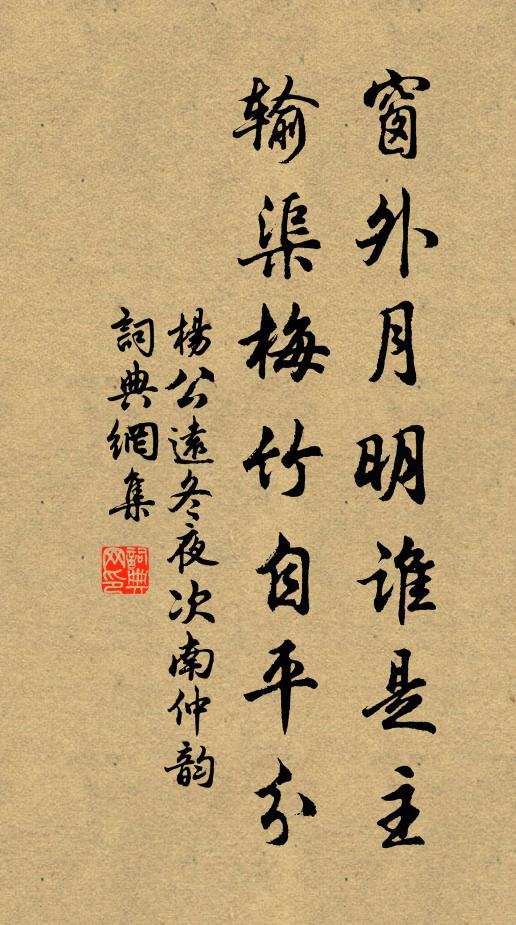 窗外月明誰是主
輸渠梅竹自平分
楊公遠冬夜次南仲韵
詞典網集
詞典網印